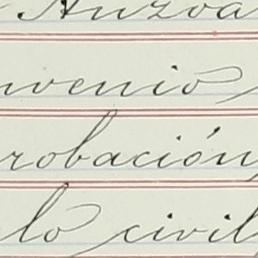 Anzoa
nvenio
robación,
lo civil